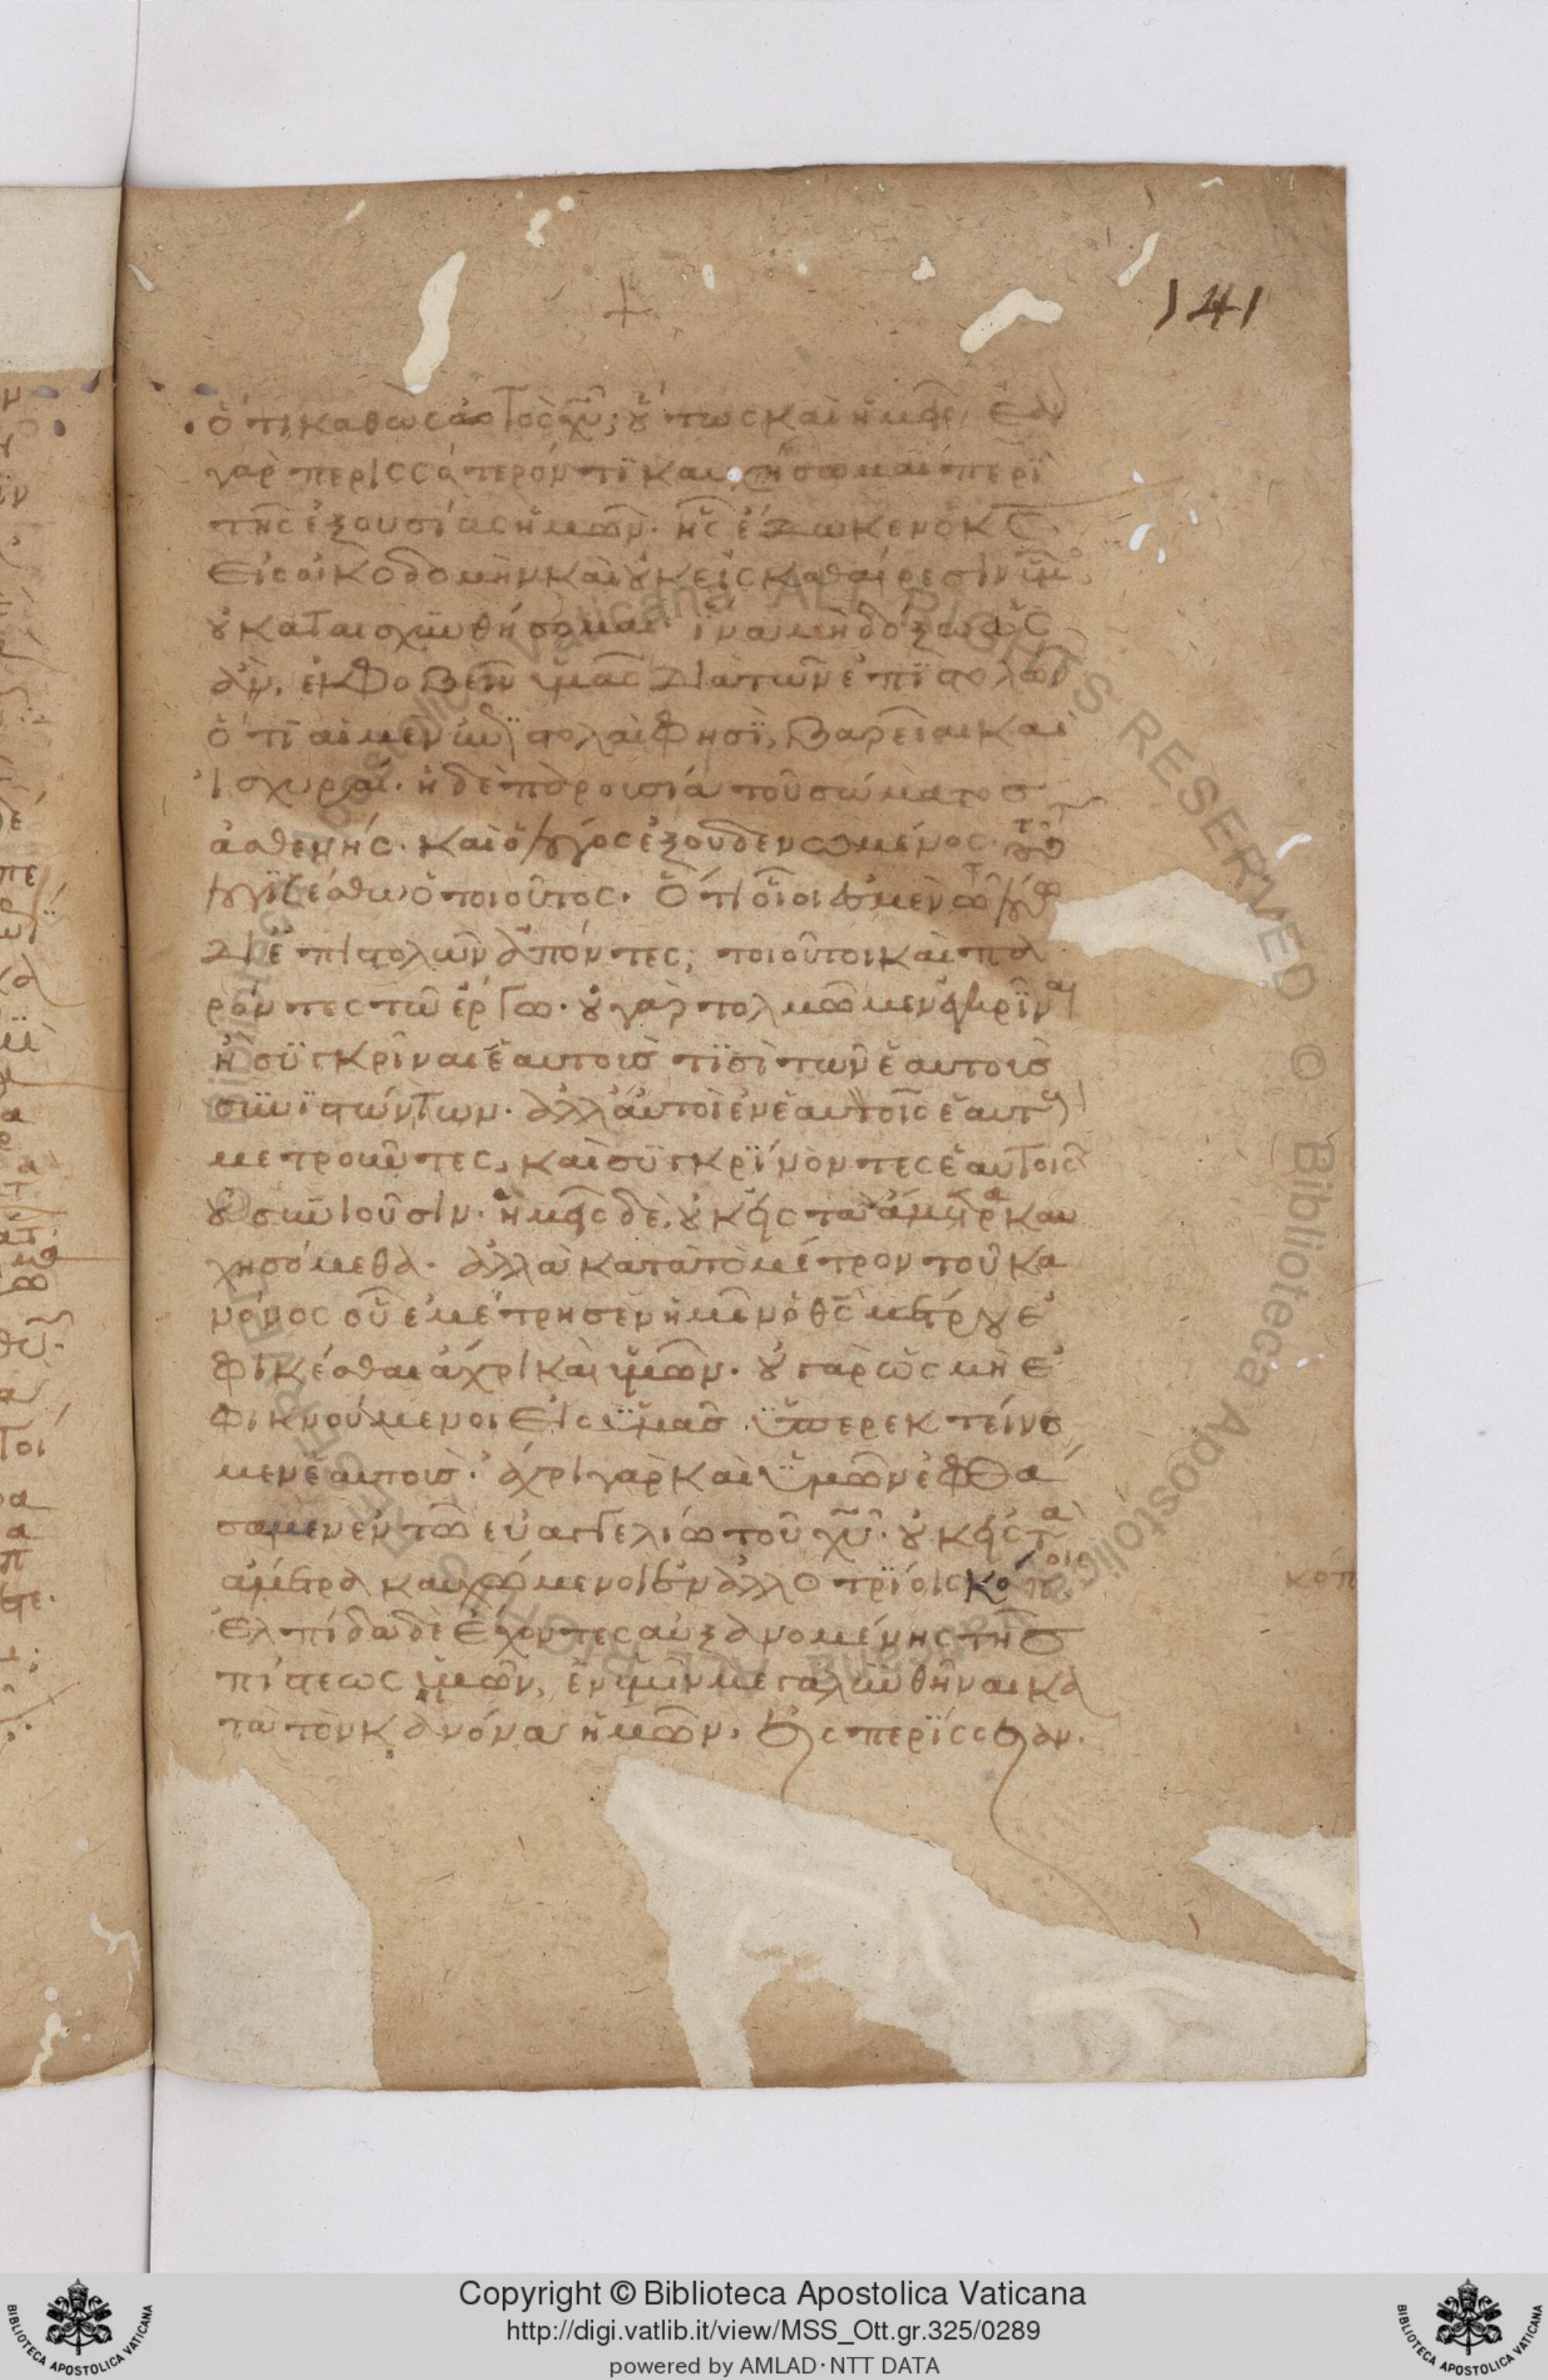 141
ὅτι καθὼς αὐτὸς χῦ, οὕτως καὶ ἡμεῖς. ἐὰν
γὰρ περισσότερόν τι καυχήσωμαι περὶ
τῆς ἐξουσίας ἡμῶν. ἧς ἔδωκεν ὁ κς
εἰς οἰκοδομὴν καὶ οὐκ εἰς καθαίρεσιν ὑμῶ
οὐκ αἰσχυνθήσομαι. ἵνα μὴ δόξω ὡς
ἂν ἐκφοβεῖν ὑμᾶς διὰ τῶν ἐπιστολῶν
ὅτι αἱ μὲν ἐπιστολαὶ φησὶ, βαρεῖαι καὶ
ἰσχυραί. ἡ δὲ παρουσία τοῦ σώματος
ἀσθενής. καὶ ὁ λόγος ἐξουδενωμένος. τοῦτο
λογιζέσθω ὁ τοιοῦτος. ὅτι οἷοί ἐσμεν τῶ λόγω
δι ἐπιστολῶν ἀπόντες, τοιοῦτοι καὶ πα
ρόντες τῶ ἔργω. οὐ γὰρ τολμῶμεν ἐγκρῖναι
ἢ συγκρῖναι ἑαυτοὺς τισὶ τῶν ἑαυτοὺς
συνιστώντων. ἀλλὰ αὐτοὶ ἐν ἑαυτοῖς ἑαυτοὺς
μετροῦντες, καὶ συγκρίνοντες ἑαυτοὺς
οὐ συνιοῦσιν. ἡμεῖς δὲ, οὐκ εἰς τὰ ἄμετρα καυ
χησόμεθα. ἀλλὰ κατὰ τὸ μέτρον τοῦ κα
νόνος οὗ ἐμέτρησεν ἡμῖν ὁ θς μέτρου ἐ
φικέσθαι ἄχρι καὶ ὑμῶν. οὐ γὰρ ὡς μὴ ἐ
φικνούμενοι εἰς ὑμᾶς ὑπερεκτείνο
μεν ἑαυτούς. ἄχρι γὰρ καὶ ὑμῶν ἐφθά
σαμεν ἐν τῶ εὐαγγελίω τοῦ χῦ. οὐκ εἰς τὰ
ἄμετρα καυχώμενοι ἐν ἀλλοτρίοις κόποις
κόπ
ἐλπίδα δὲ ἔχοντες αὐξανομένης τῆς
πίστεως ὑμῶν, ἐν ὑμῖν μεγαλυνθῆναι κα
τὰ τὸν κανόνα ἡμῶν, εἰς περισσείαν.
Copyright © Biblioteca Apostolica Vaticana
http://digi.vatlib.it/view/MSS_Ott.gr.325/0289
powered by AMLAD·NTT DATA